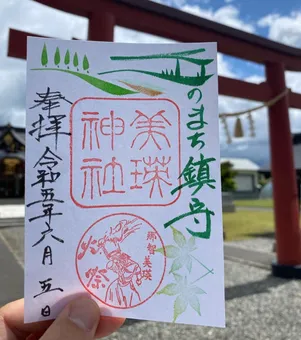 丘のまち鎮守
美瑛
神社
那智美瑛
火祭
奉拝
令和五年六月五日